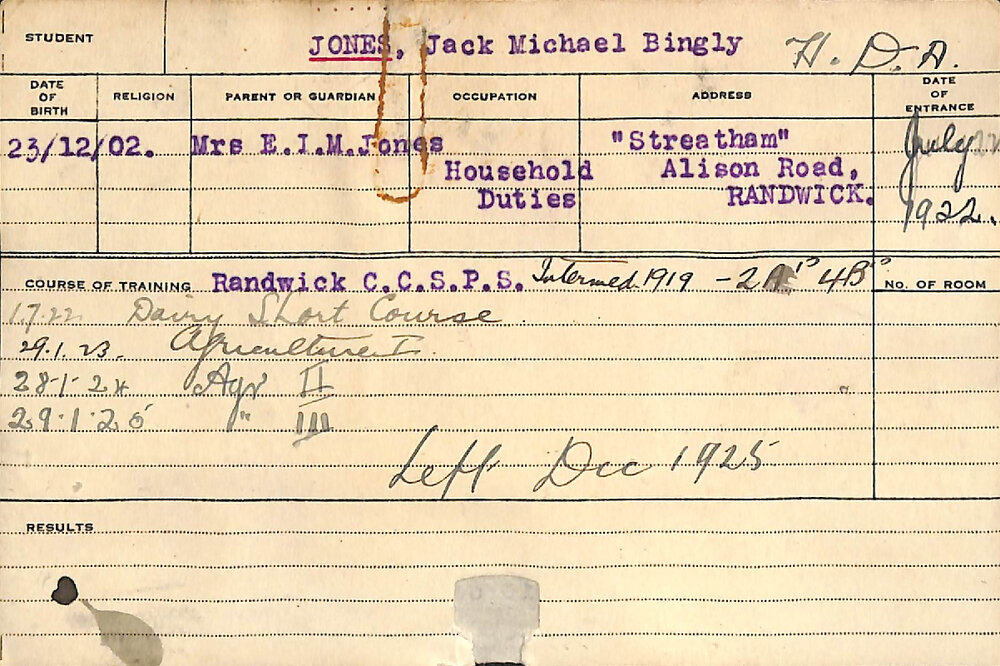 STUDENT JONES, Jack Michael Bingly H. D. A.
DATE OF BIRTH RELIGION PARENT OR GUARDIAN OCCUPATION ADDRESS DATE OF ENTRANCE
23/12/02. Mrs E.I.M.Jones "Streatham" July
Household Alison Road,
Duties RANDWICK. 1922.
COURSE OF TRAINING Randwick C.C.S.P.S. Intermed. 1919 - 2A's 4B's No. OF ROOM
1.7.22 Dairy Short Course
29.1.23. Agriculture I.
28-1-24 Agr II
29.1.25 " III
Left Dec 1925
RESULTS